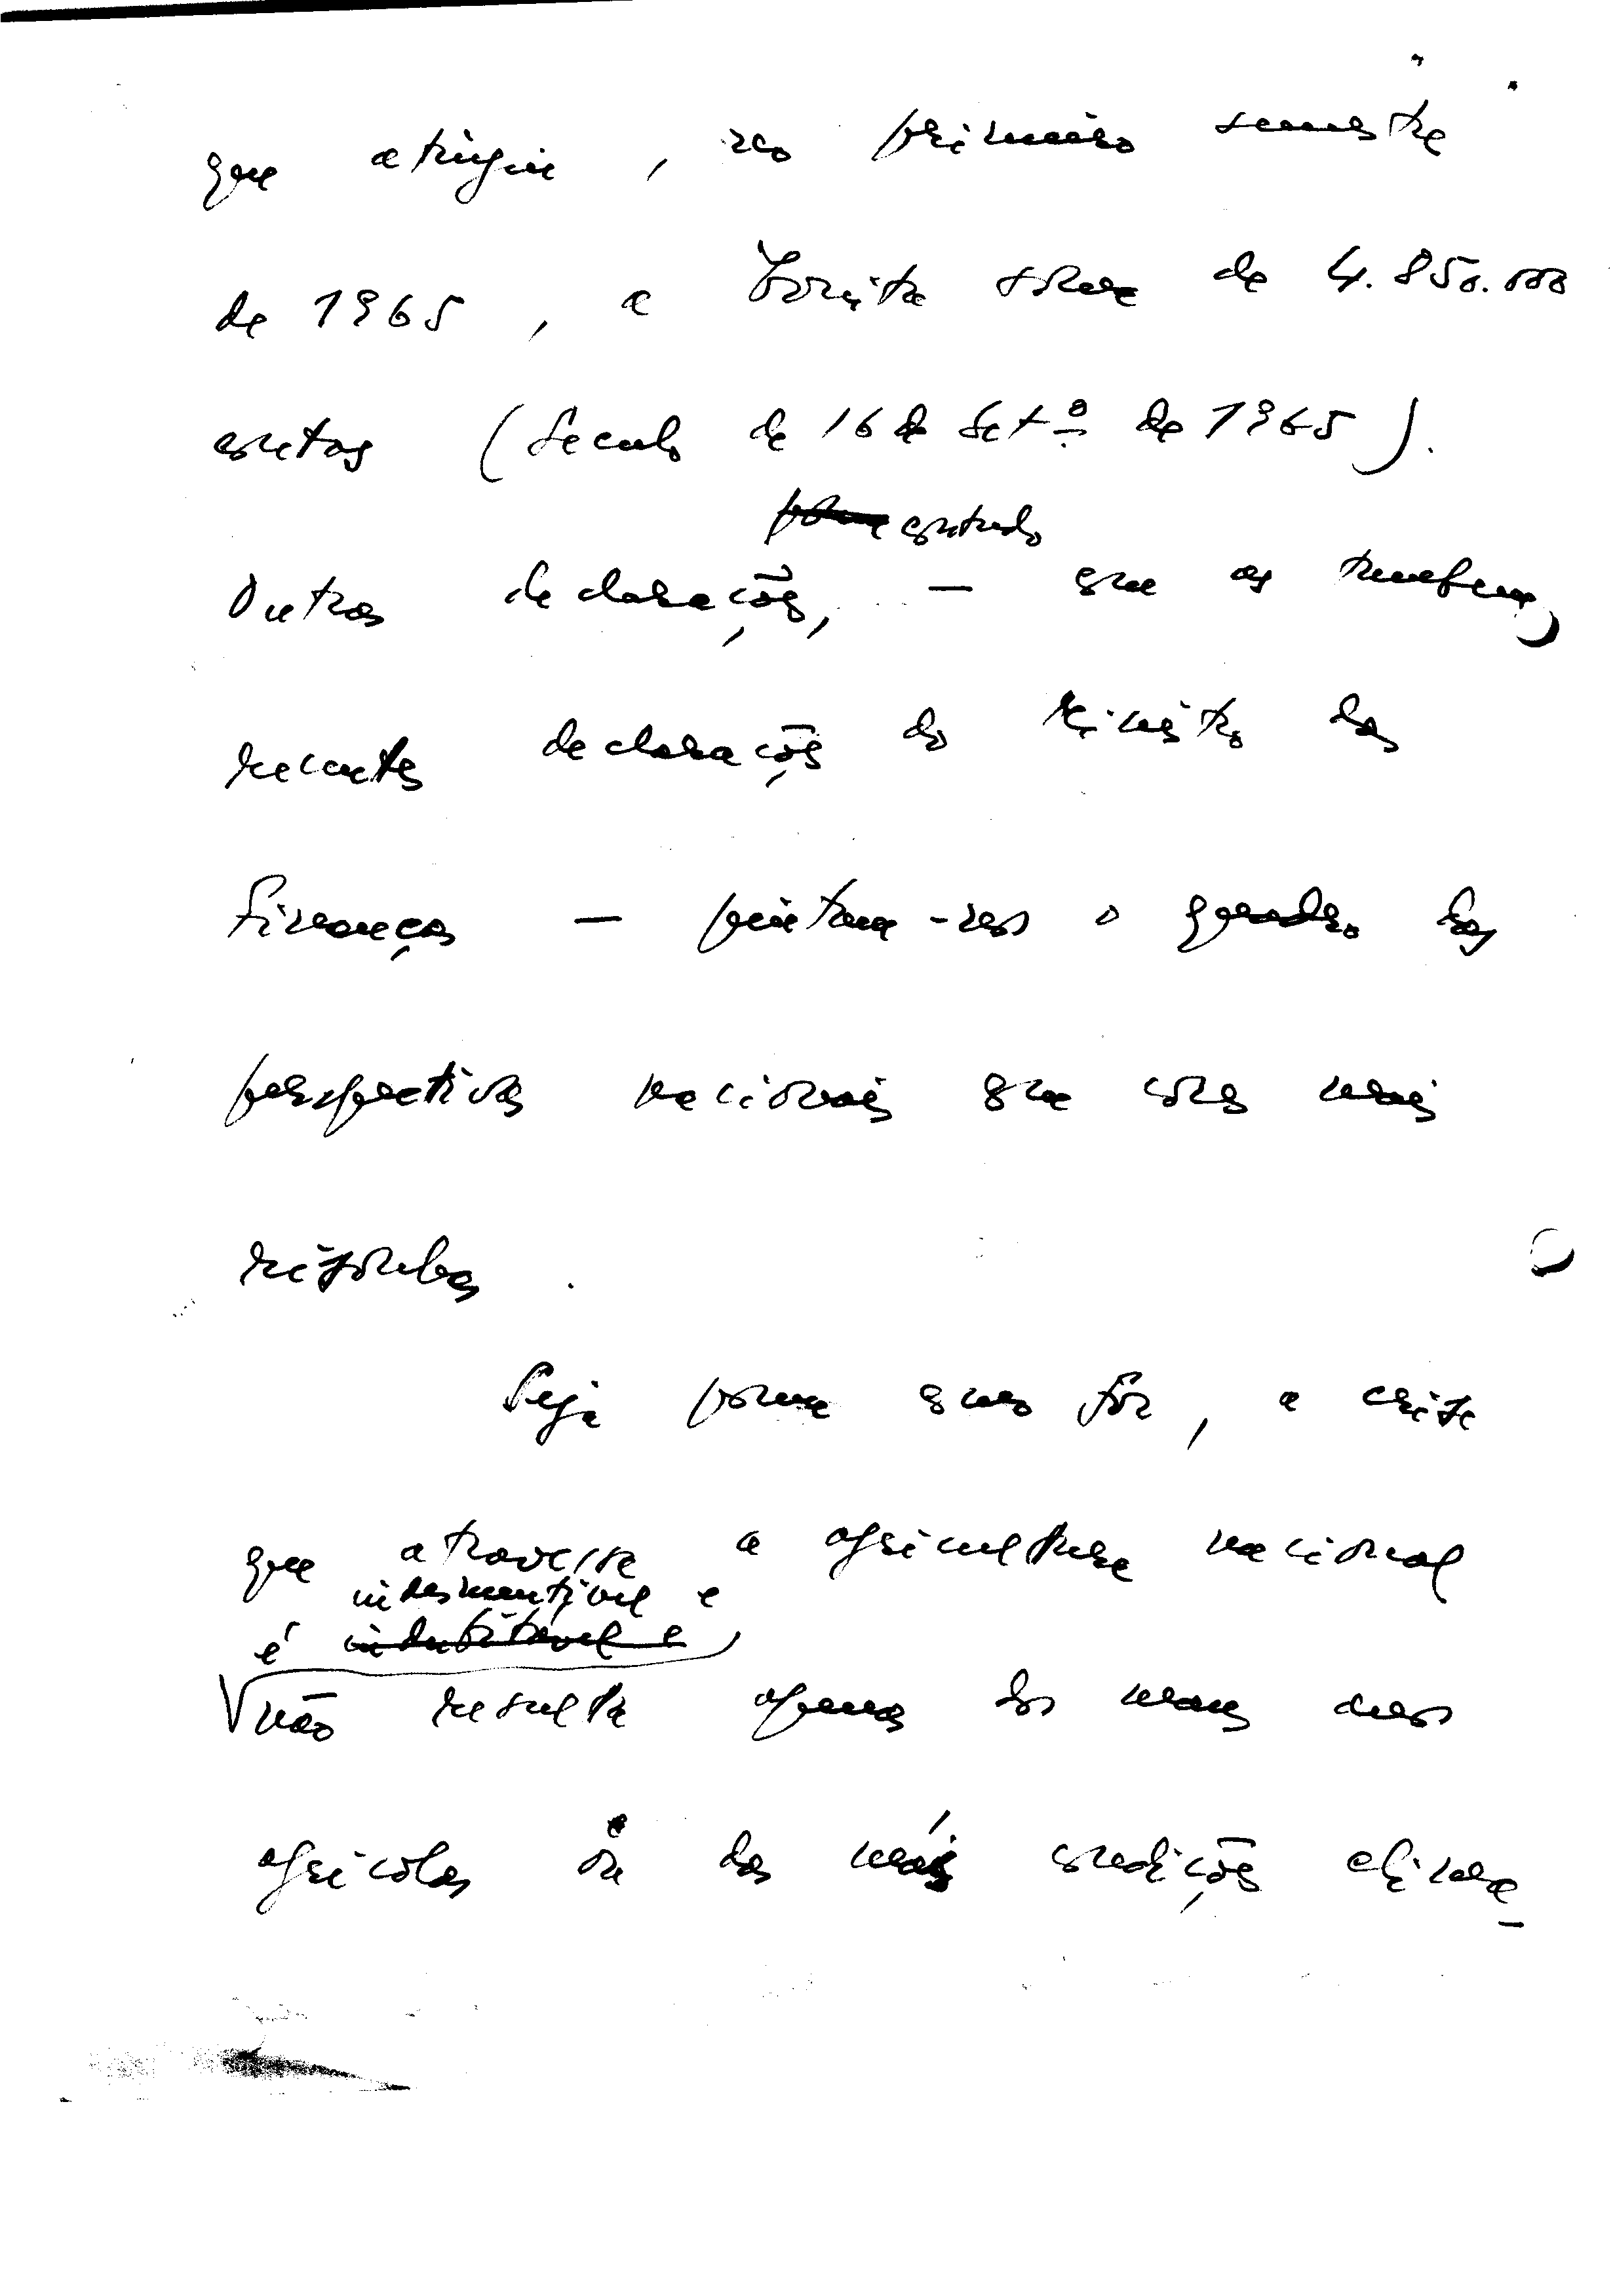 que atingiu, no primeiro semestre
de 1965, a bonita soma de 4.850.000
contos (Seculo de 16 de Setº de 1965).
contudo
Outras declarações, — que as
recentes declarações do Ministro das
Finanças — pintam-nos o quadro das
perspectivas nacionais que com mais
risonhas.
Seja como for, a crise
que atravessa a agricultura nacional
indesmentível e
é indubitável e
não resulta apenas dos maus anos
agrícolas ou das más condições clima-